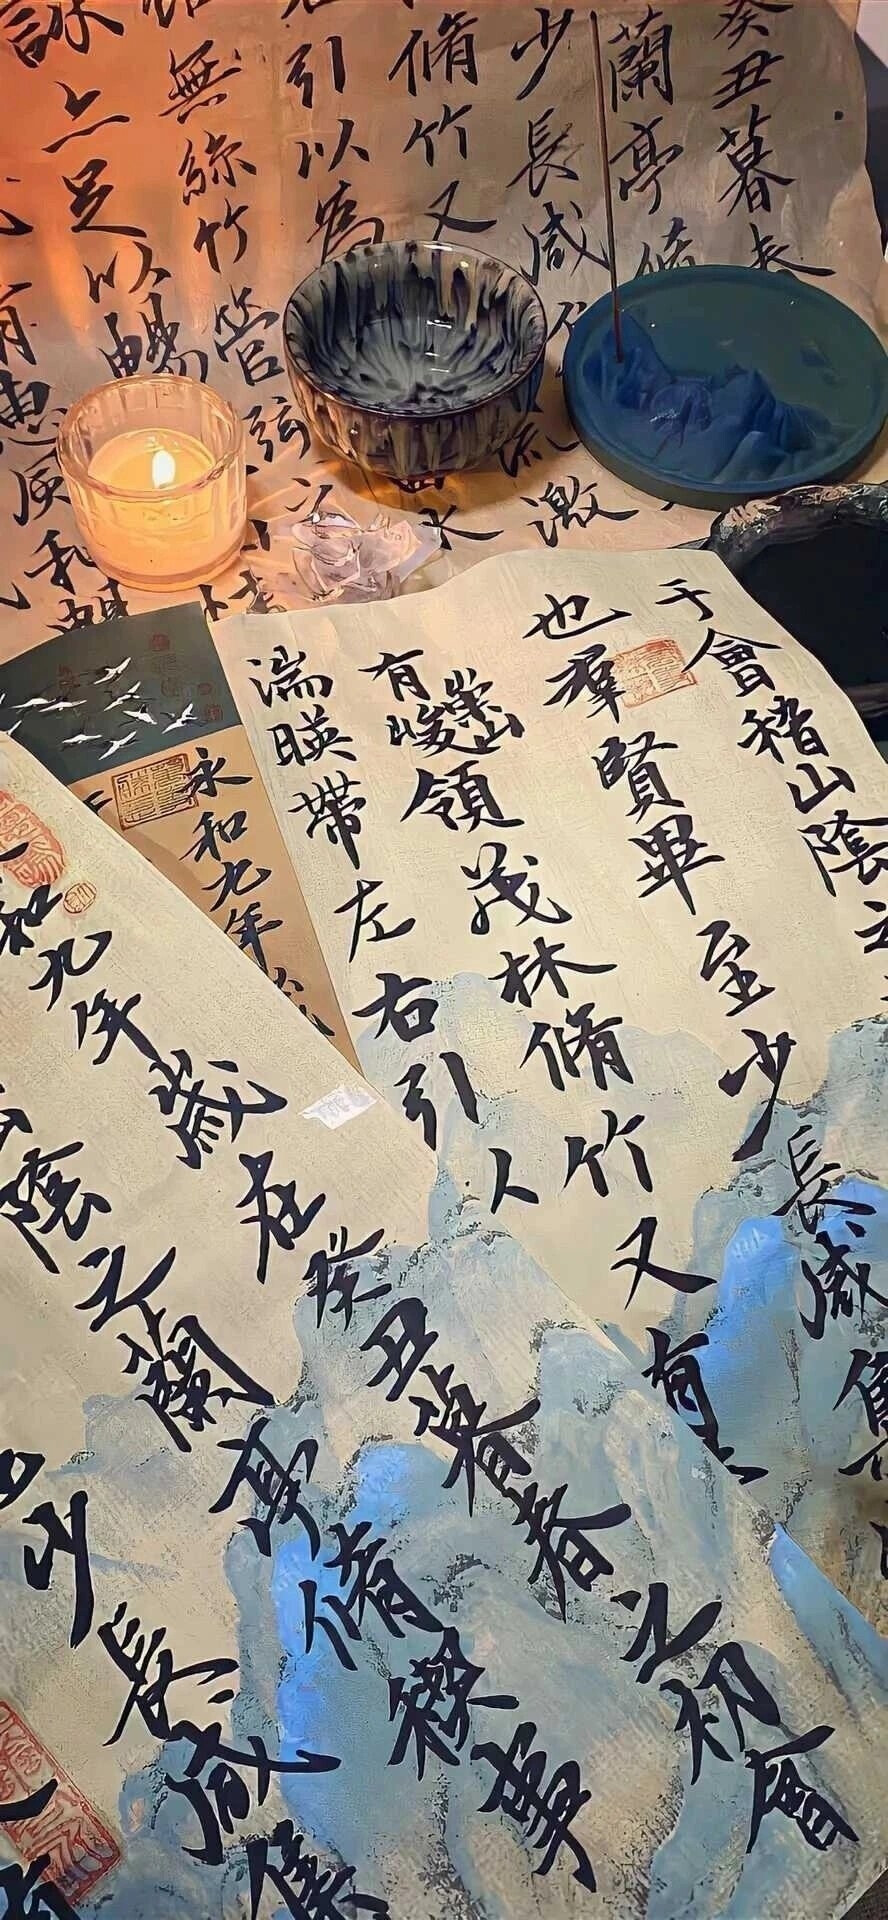 癸丑暮春
蘭亭脩
少長咸
激
脩竹又
引以為
無絲竹管弦之
詠亦足以暢
有惠風和暢
于會稽山陰之
也羣賢畢至少長咸集
有崇山峻領茂林脩竹又有
湍暎帶左右引人
永和九年歲
和九年歲在癸丑暮春之初會
山陰之蘭亭脩禊事
少長咸集